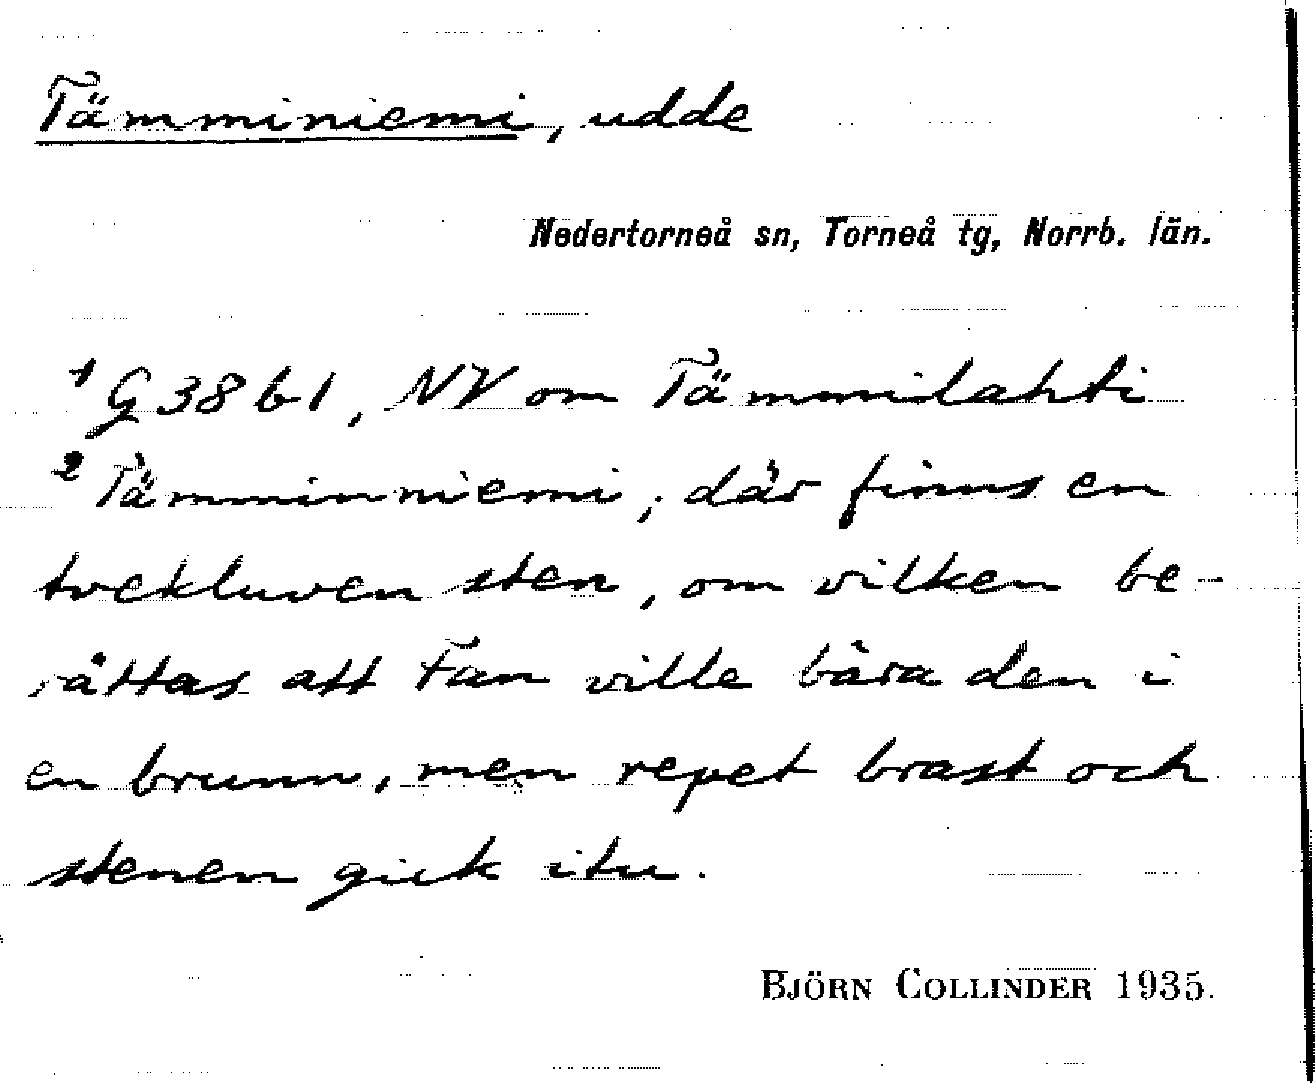 Tämminiemi, udde
Nedertorneå sn, Torneå tg, Norrb. län.
1 G 38 b1, NV om Tämmilahti
2 Tämminniemi; där finns en
tvekluven sten, om vilken be-
rättas att Fan ville bära den i
en brunn, men repet brast och
stenen gick itu.
BJÖRN COLLINDER 1935.